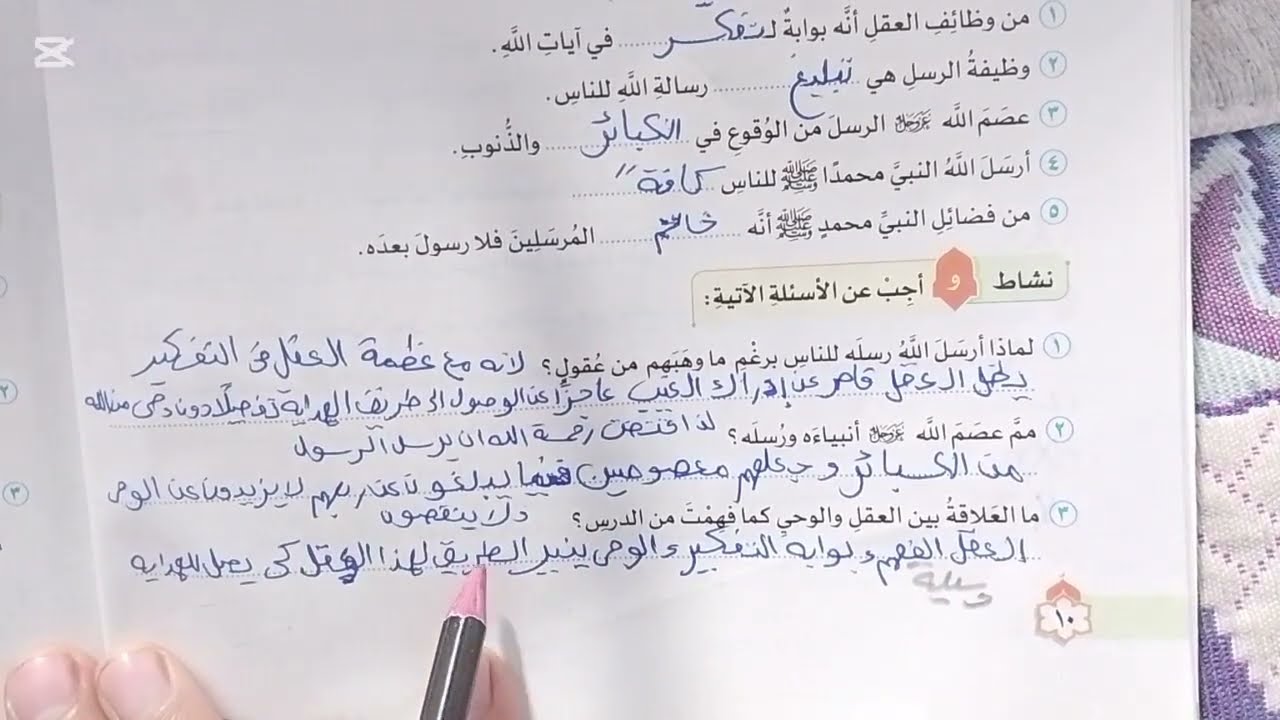 ١ من وظائفِ العقلِ أنَّه بوابةٌ لـ تفكّر في آياتِ اللَّهِ.
٢ وظيفةُ الرسلِ هي تبليغ رسالةِ اللَّهِ للناسِ.
٣ عصَمَ اللَّه عَزَّوَجَلَّ الرسلَ من الوُقوعِ في الكبائر والذُّنوبِ.
٤ أرسَلَ اللَّهُ النبيَّ محمدًا ﷺ للناسِ كافة
٥ من فضائلِ النبيِّ محمدٍ ﷺ أنَّه خاتم المُرسَلِينَ فلا رسولَ بعدَه.
نشاط و أجِبْ عن الأسئلةِ الآتيةِ:
١ لماذا أرسَلَ اللَّهُ رسلَه للناسِ برغْمِ ما وهَبَهم من عُقولٍ؟ لأنه مع عظمة العقل في التفكير
يظل العقل قاصر عن إدراك الغيب عاجزًا عن الوصول إلى طريق الهداية تفصيلًا دون وحي من الله
لذا اقتضت رحمة الله أن يرسل الرسول
٢ ممَّ عصَمَ اللَّه عَزَّوَجَلَّ أنبياءَه ورُسلَه؟
من الكبائر وجعلهم معصومين فيما يبلغونه عن ربهم لا يزيدون عن الوحي
ولا ينقصون
٣ ما العَلاقةُ بين العقلِ والوحيِ كما فهِمْتَ من الدرسِ؟
العقل الفهم و بوابة التفكير و الوحي ينير الطريق لهذا العقل كي يصل للهداية
وسيلة
١٠
٢
٣